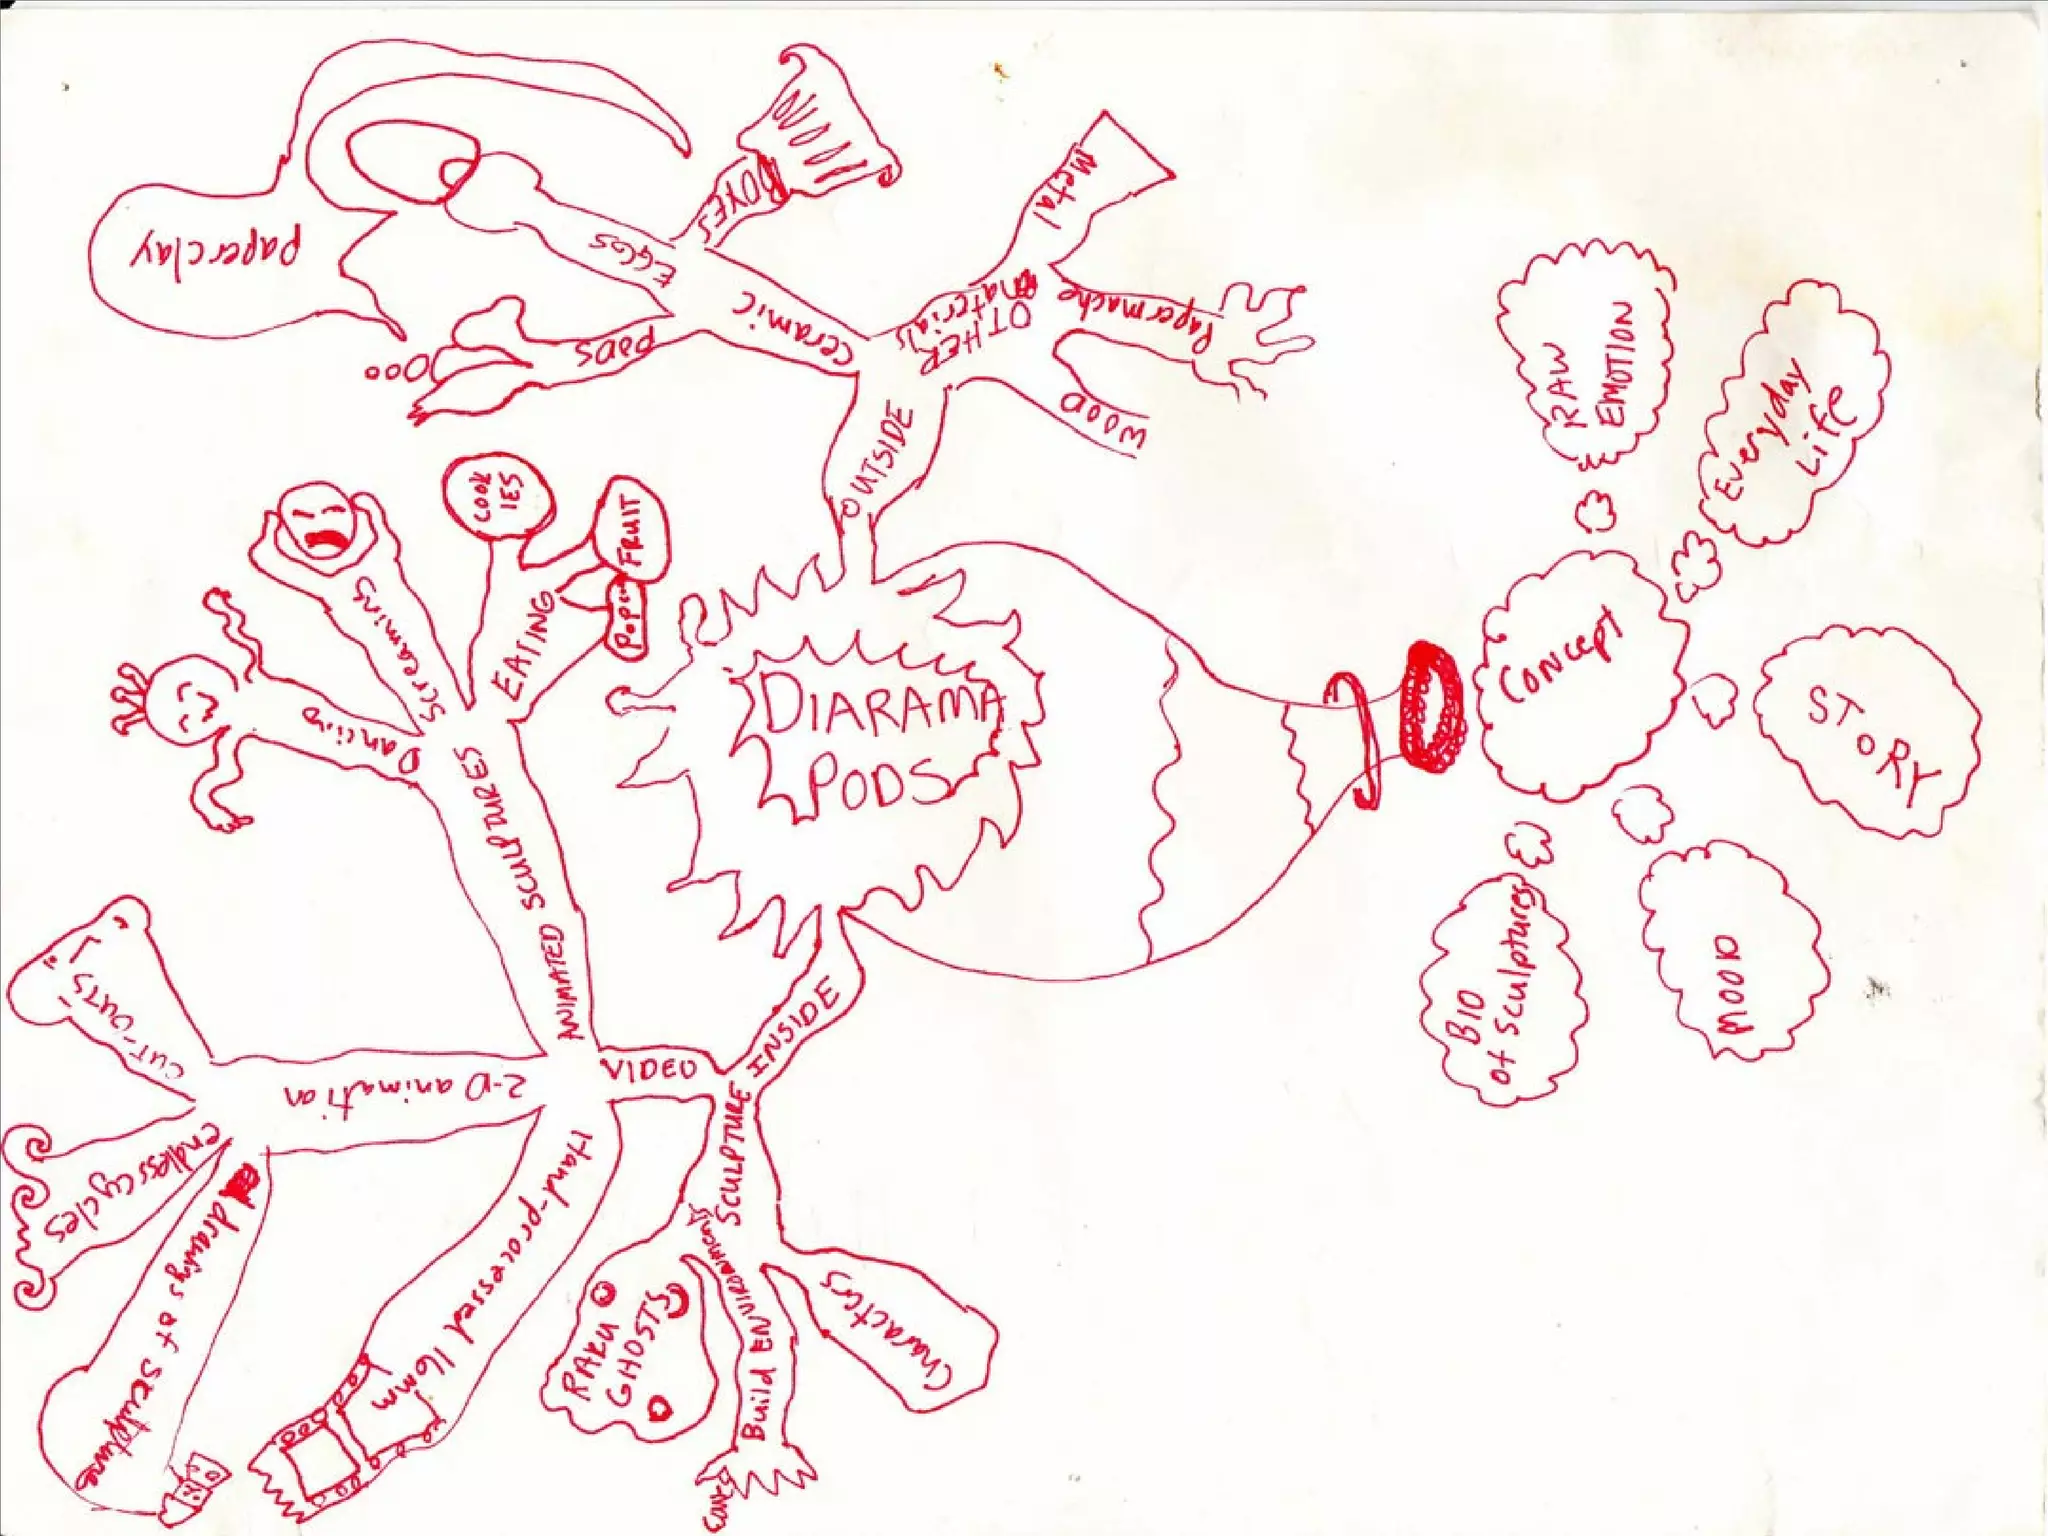 DIARAMA
PODS
OUTSIDE
ceramic
BOXES
EGGS
PODS
paperclay
OTHER
materials
Metal
Papermache
WOOD
INSIDE
VIDEO
ANIMATED SCULPTURES
EATING
COOK
IES
FRUIT
Screaming
Dancing
2-D animation
CUT-OUTS
endless cycles
drawings of sculptures
Hand-processed 16mm
SCULPTURE
RAKU
GHOSTS
Build ENVIRONMENTS
Characters
CONCEPT
RAW
EMOTION
Everyday
Life
STORY
MOOD
BIO
of sculptures